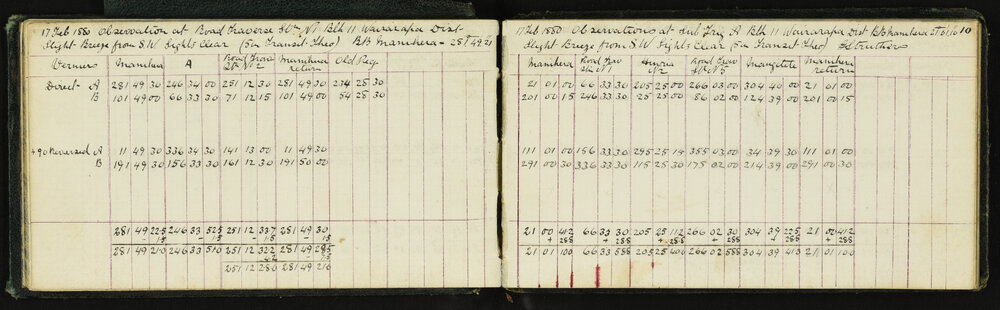 17 Feb 1880 Observation at Road Traverse Stn No 1 Blk 11 Wairarapa Dist
Slight Breeze from SW Sights Clear (5in Transit Theo) BB Manihera - 281° 49' 21
Verniers Manihera A Road Trav Stn No 2 Manihera return Old Peg
Direct A 281 49 30 246 34 00 251 12 30 281 49 30 234 25 30
B 101 49 00 66 33 30 71 12 15 101 49 00 54 25 30
+90 Reversed A 11 49 30 336 34 30 141 13 00 11 49 30
B 191 49 30 156 33 30 161 12 30 191 50 00
281 49 22.5 246 33 52.5 251 12 33.7 281 49 30
- 1.5 - 1.5 - 1.5 1.5
281 49 21.0 246 33 51.0 251 12 32.2 281 49 28.5
4.2 7.5
251 12 28.0 281 49 21.0
17 Feb 1880 Observations at Sub Trig A Blk 11 Wairarapa Dist BB Manihera 21° 61' 10 10
Slight Breeze from SW Sights Clear (5in Transit Theo) Struthers
Manihera Road Trav Stn No 1 No 2 Road Trav Stn No 5 Manihera return
21 01 00 66 33 30 205 25 00 266 03 00 304 40 00 21 01 00
201 00 15 246 33 30 25 25 00 86 02 00 124 39 00 201 00 15
111 01 00 156 33 30 295 25 14 355 03 00 34 39 30 111 01 00
291 00 30 336 33 30 115 25 30 175 02 00 214 39 00 291 00 30
21 00 41.2 66 33 30 205 25 11.2 266 02 30 304 39 22.5 21 00 41.2
+ 28.8 + 28.8 + 28.8 + 28.8 + 28.8 28.8
21 01 10.0 66 33 58.8 205 25 40.0 266 02 58.8 304 39 41.3 21 01 10.0